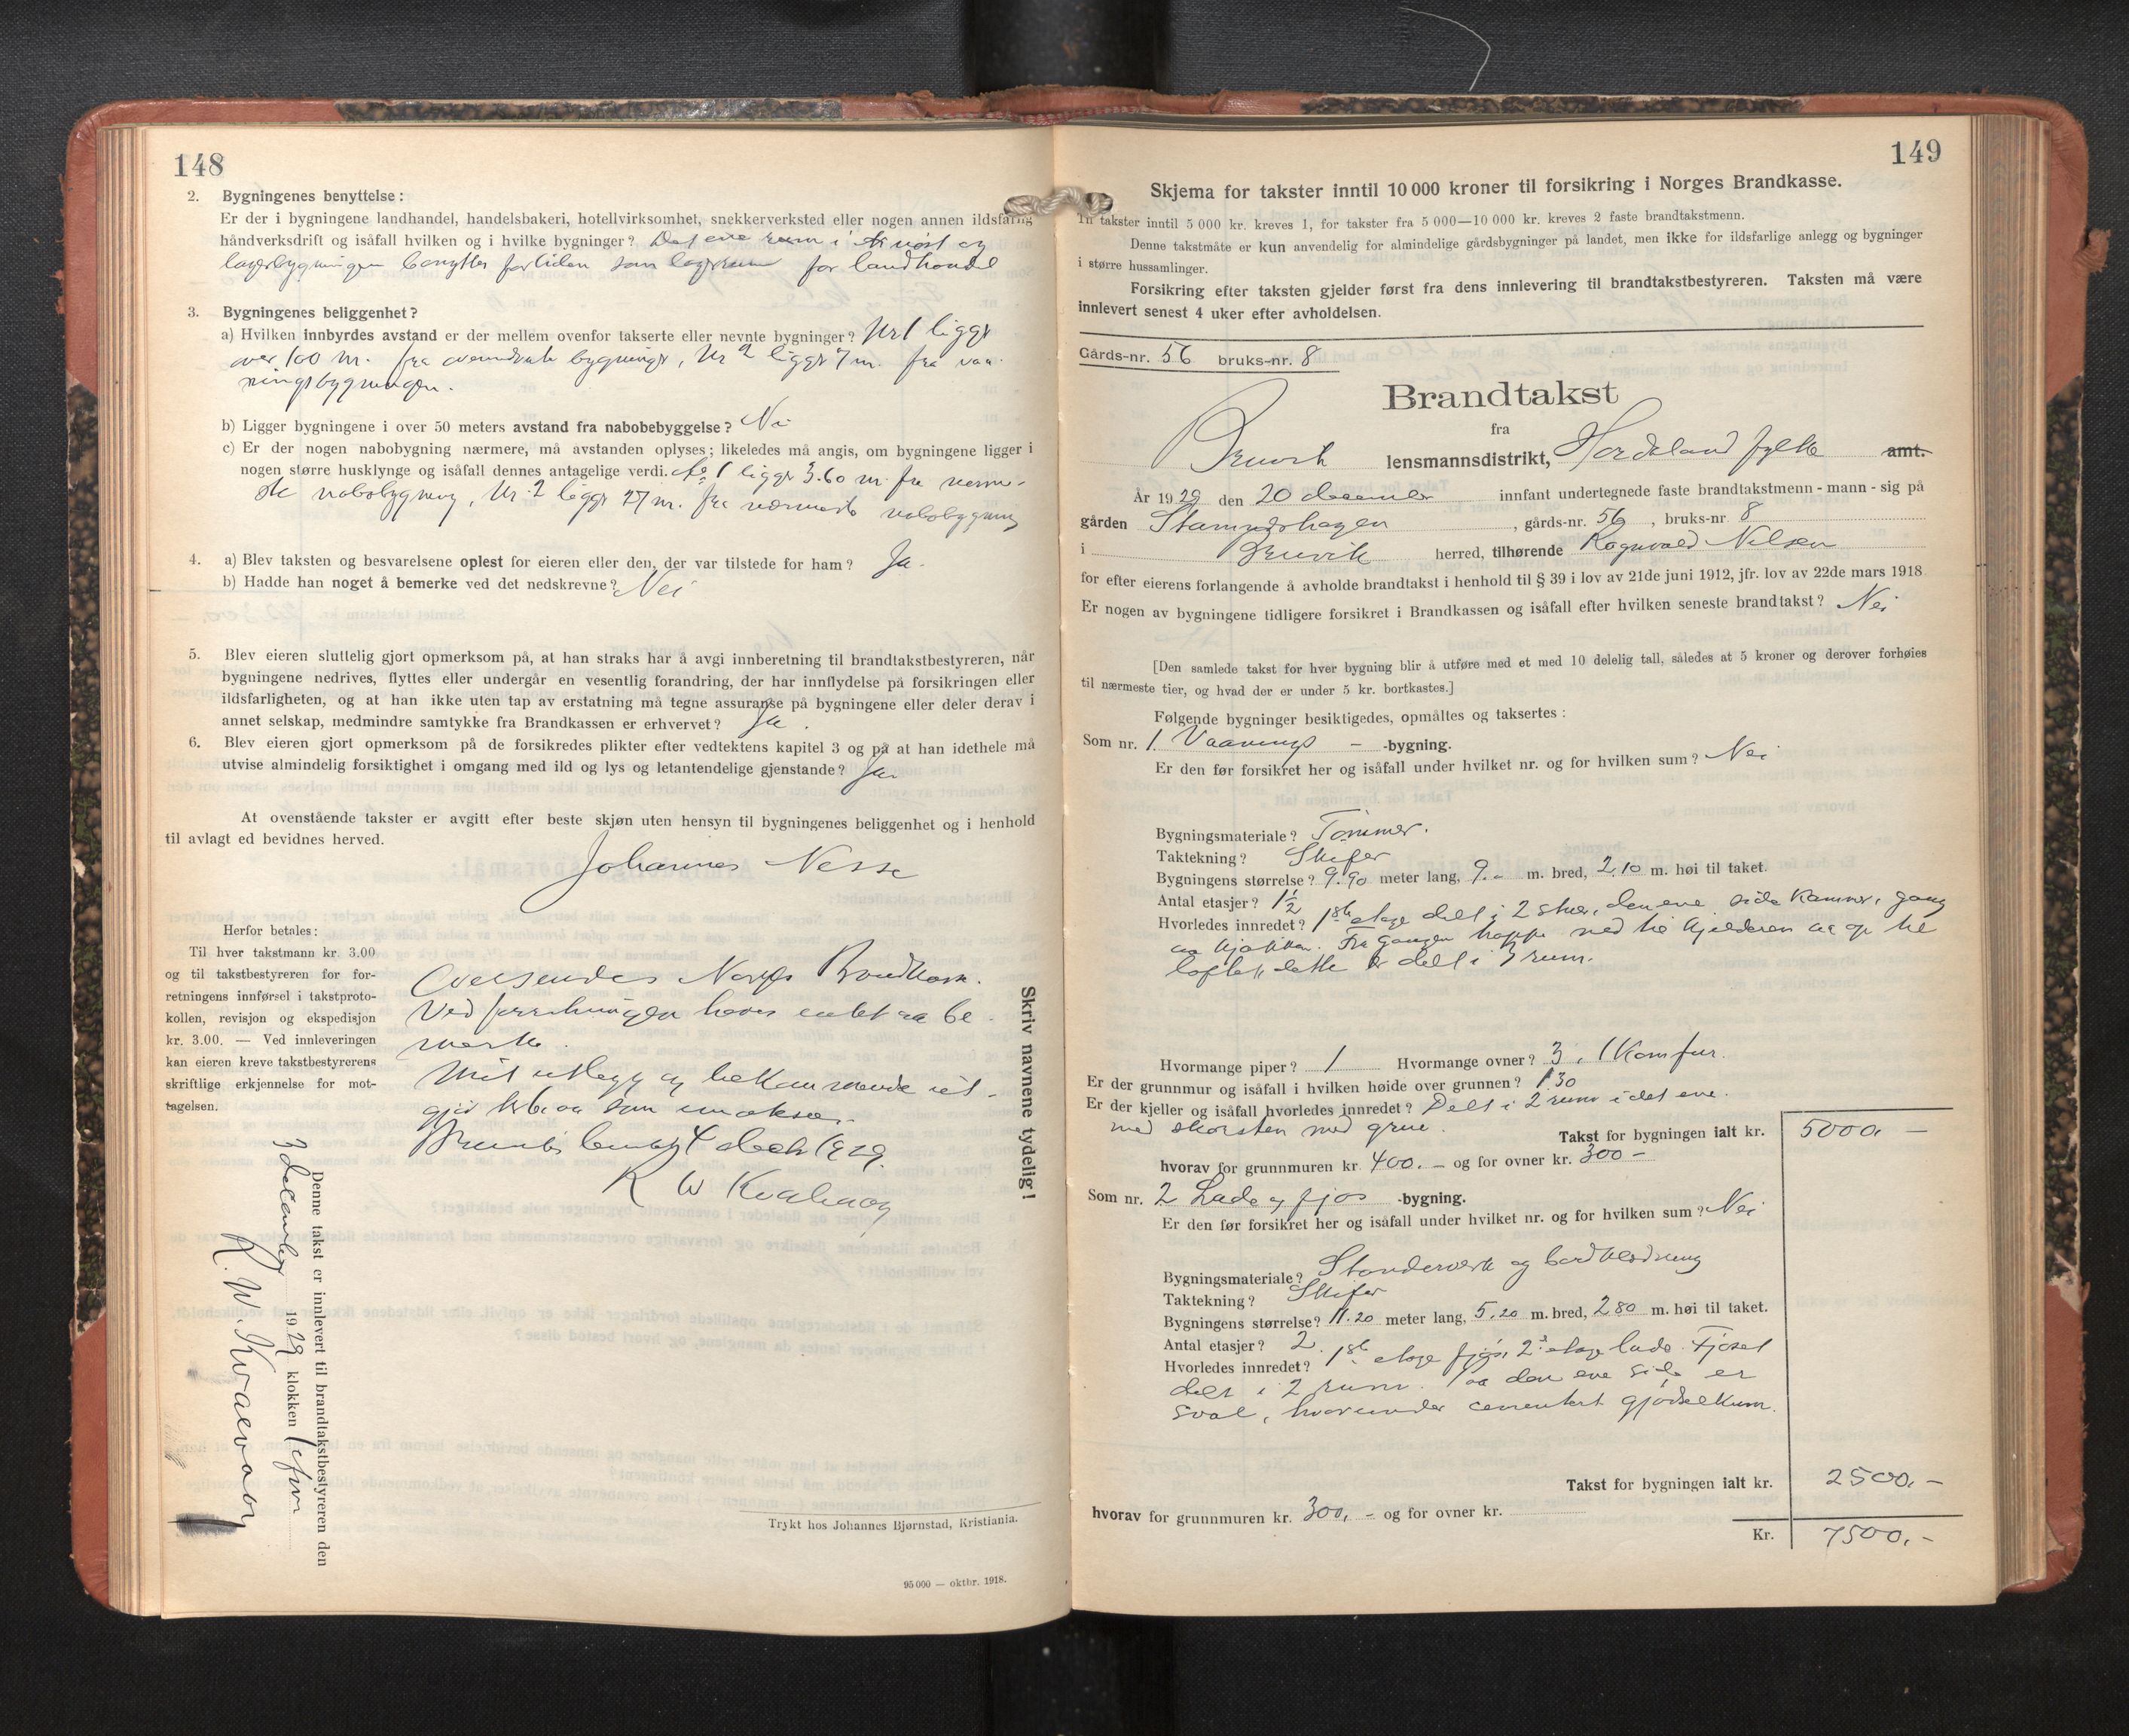 148
2. Bygningenes benyttelse:
Er der i bygningene landhandel, handelsbakeri, hotellvirksomhet, snekkerverksted eller nogen annen ildsfarlig
håndverksdrift og isåfall hvilken og i hvilke bygninger? Det ene rum i nøst og
lagerbygningen benyttes fortiden som lagerrum for landhandel
3. Bygningenes beliggenhet?
a) Hvilken innbyrdes avstand er der mellem ovenfor takserte eller nevnte bygninger? Nr 1 ligger
over 100 m. fra bygninger, Nr 2 ligger 7 m. fra vaa-
ningsbygningen.
b) Ligger bygningene i over 50 meters avstand fra nabobebyggelse? Nei
c) Er der nogen nabobygning nærmere, må avstanden oplyses; likeledes må angis, om bygningene ligger i
nogen større husklynge og isåfall dennes antagelige verdi. No 1 ligger 3.60 m. fra nærme-
ste nabobygning, Nr. 2 ligger 27 m. fra nærmeste nabobygning
4. a) Blev taksten og besvarelsene oplest for eieren eller den, der var tilstede for ham? Ja.
b) Hadde han noget å bemerke ved det nedskrevne? Nei
5. Blev eieren sluttelig gjort opmerksom på, at han straks har å avgi innberetning til brandtakstbestyreren, når
bygningene nedrives, flyttes eller undergår en vesentlig forandring, der har innflydelse på forsikringen eller
ildsfarligheten, og at han ikke uten tap av erstatning må tegne assuranse på bygningene eller deler derav i
annet selskap, medmindre samtykke fra Brandkassen er erhvervet? Ja.
6. Blev eieren gjort opmerksom på de forsikredes plikter efter vedtektens kapitel 3 og på at han idethele må
utvise almindelig forsiktighet i omgang med ild og lys og letantendelige gjenstande? Ja.
At ovenstående takster er avgitt efter beste skjøn uten hensyn til bygningenes beliggenhet og i henhold
til avlagt ed bevidnes herved.
Johannes Nesse
Herfor betales:
Til hver takstmann kr. 3.00
og til takstbestyreren for for-
retningens innførsel i takstproto-
kollen, revisjon og ekspedisjon
kr. 3.00. — Ved innleveringen
kan eieren kreve takstbestyrerens
skriftlige erkjennelse for mot-
tagelsen.
Oversendes Norges Brandkasse.
Ved forretningen haves intet aa be-
merke.
Mit utlegg og bekommende ut-
gjør kr. 6.00 som
Bruvik 4 decbr 1929.
R W Kvalvaag
Skriv navnene tydelig!
Denne takst er innlevert til brandtakstbestyreren den
3 december 1929 klokken 1 efm
R. W. Kvalvaag
Trykt hos Johannes Bjørnstad, Kristiania.
95 000 — oktbr. 1918.
149
Skjema for takster inntil 10 000 kroner til forsikring i Norges Brandkasse.
Til takster inntil 5 000 kr. kreves 1, for takster fra 5 000—10 000 kr. kreves 2 faste brandtakstmenn.
Denne takstmåte er kun anvendelig for almindelige gårdsbygninger på landet, men ikke for ildsfarlige anlegg og bygninger
i større hussamlinger.
Forsikring efter taksten gjelder først fra dens innlevering til brandtakstbestyreren. Taksten må være
innlevert senest 4 uker efter avholdelsen.
Gårds-nr. 56 bruks-nr. 8
Brandtakst
fra
Bruvik lensmannsdistrikt, Hordaland fylke amt.
År 1929 den 20 innfant undertegnede faste brandtakstmenn - mann - sig på
gården Stamneshagen, gårds-nr. 56, bruks-nr 8
i Bruvik herred, tilhørende Rognvald Nilsen
for efter eierens forlangende å avholde brandtakst i henhold til § 39 i lov av 21de juni 1912, jfr. lov av 22de mars 1918
Er nogen av bygningene tidligere forsikret i Brandkassen og isåfall efter hvilken seneste brandtakst? Nei
[Den samlede takst for hver bygning blir å utføre med et med 10 delelig tall, således at 5 kroner og derover forhøies
til nærmeste tier, og hvad der er under 5 kr. bortkastes.]
Følgende bygninger besiktigedes, opmåltes og taksertes:
Som nr. 1 Vaanings - -bygning.
Er den før forsikret her og isåfall under hvilket nr. og for hvilken sum? Nei
Bygningsmateriale? Tømmer.
Taktekning? Skifer
Bygningens størrelse? 9.90 meter lang, 9.- m. bred, 2,10 m. høi til taket.
Antal etasjer? 1½
Hvorledes innredet? 1ste etage delt i 2 stuer, den ene side kammer, gang
og kjøkken. Fra gangen trappe ned til kjelderen og op til
loftet, dette er delt i 7 rum.
Hvormange piper? 1 Hvormange ovner? 3, 1 Komfur.
Er der grunnmur og isåfall i hvilken høide over grunnen? 1.30
Er der kjeller og isåfall hvorledes innredet? Delt i 2 rum i det ene
med skorsten med grue.
Takst for bygningen ialt kr. 5000. —
hvorav for grunnmuren kr. 400. — og for ovner kr. 300 —
Som nr. 2 Lade og fjos -bygning.
Er den før forsikret her og isåfall under hvilket nr. og for hvilken sum? Nei
Bygningsmateriale? Standerverk og bordklædning
Taktekning? Skifer
Bygningens størrelse? 11.20 meter lang, 5.20 m. bred, 2.80 m. høi til taket.
Antal etasjer? 2.
Hvorledes innredet? 1ste etage fjøs, 2. etage lade. Fjøset
delt i 2 rum. Paa den ene side er
sval, hvorunder cementert gjødselkum.
Takst for bygningen ialt kr. 2500. —
hvorav for grunnmuren kr. 300. — og for ovner kr.
Kr. 7500. —